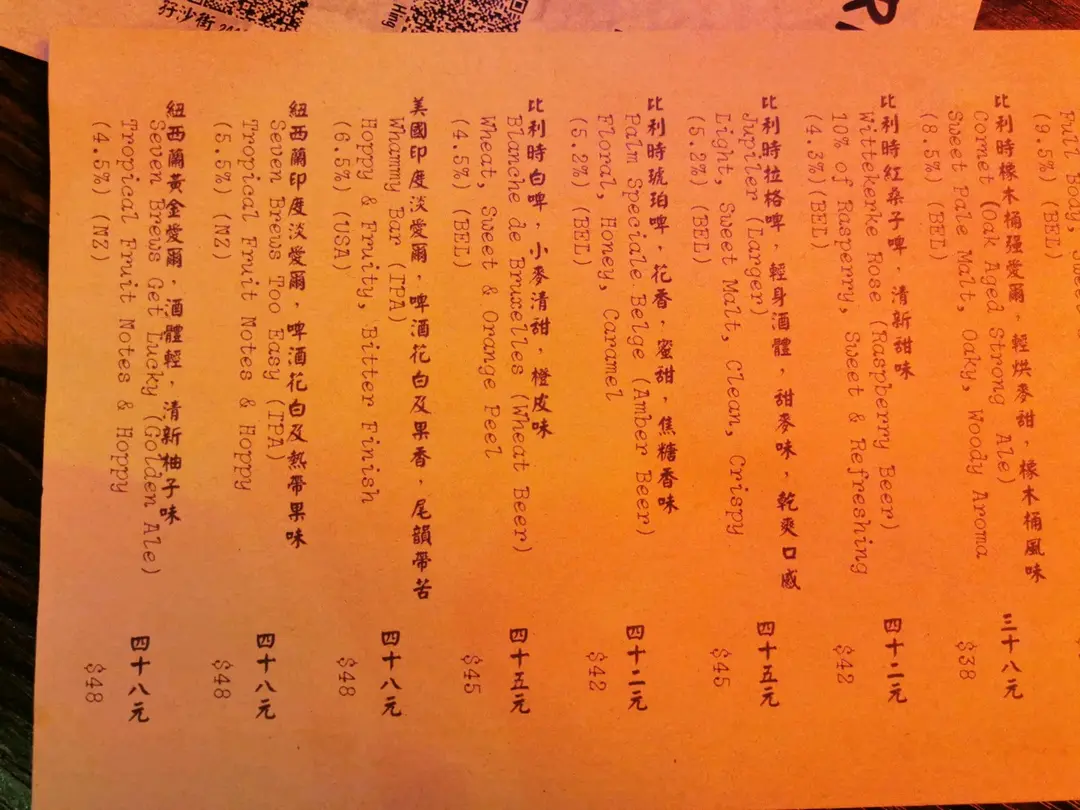 Full Body, Sweet
(9.5%) (BEL)
比利時橡木桶強愛爾，輕烘麥甜，橡木桶風味
Cornet (Oak Aged Strong Ale)
Sweet Pale Malt, Oaky, Woody Aroma
(8.5%) (BEL)
三十八元
$38
比利時紅桑子啤，清新甜味
Wittekerke Rose (Raspberry Beer)
10% of Rasperry, Sweet & Refreshing
(4.3%)(BEL)
四十二元
$42
比利時拉格啤，輕身酒體，甜麥味，乾爽口感
Jupiler (Larger)
Light, Sweet Malt, Clean, Crispy
(5.2%) (BEL)
四十五元
$45
比利時琥珀啤，花香，蜜甜，焦糖香味
Palm Speciale Belge (Amber Beer)
Floral, Honey, Caramel
(5.2%) (BEL)
四十二元
$42
比利時白啤，小麥清甜，橙皮味
Blanche de Bruxelles (Wheat Beer)
Wheat, Sweet & Orange Peel
(4.5%) (BEL)
四十五元
$45
美國印度淡愛爾，啤酒花白及果香，尾韻帶苦
Whammy Bar (IPA)
Hoppy & Fruity, Bitter Finish
(6.5%) (USA)
四十八元
$48
紐西蘭印度淡愛爾，啤酒花白及熱帶果味
Seven Brews Too Easy (IPA)
Tropical Fruit Notes & Hoppy
(5.5%) (NZ)
四十八元
$48
紐西蘭黃金愛爾，酒體輕，清新柚子味
Seven Brews Get Lucky (Golden Ale)
Tropical Fruit Notes & Hoppy
(4.5%) (NZ)
四十八元
$48
孖沙街
Hing